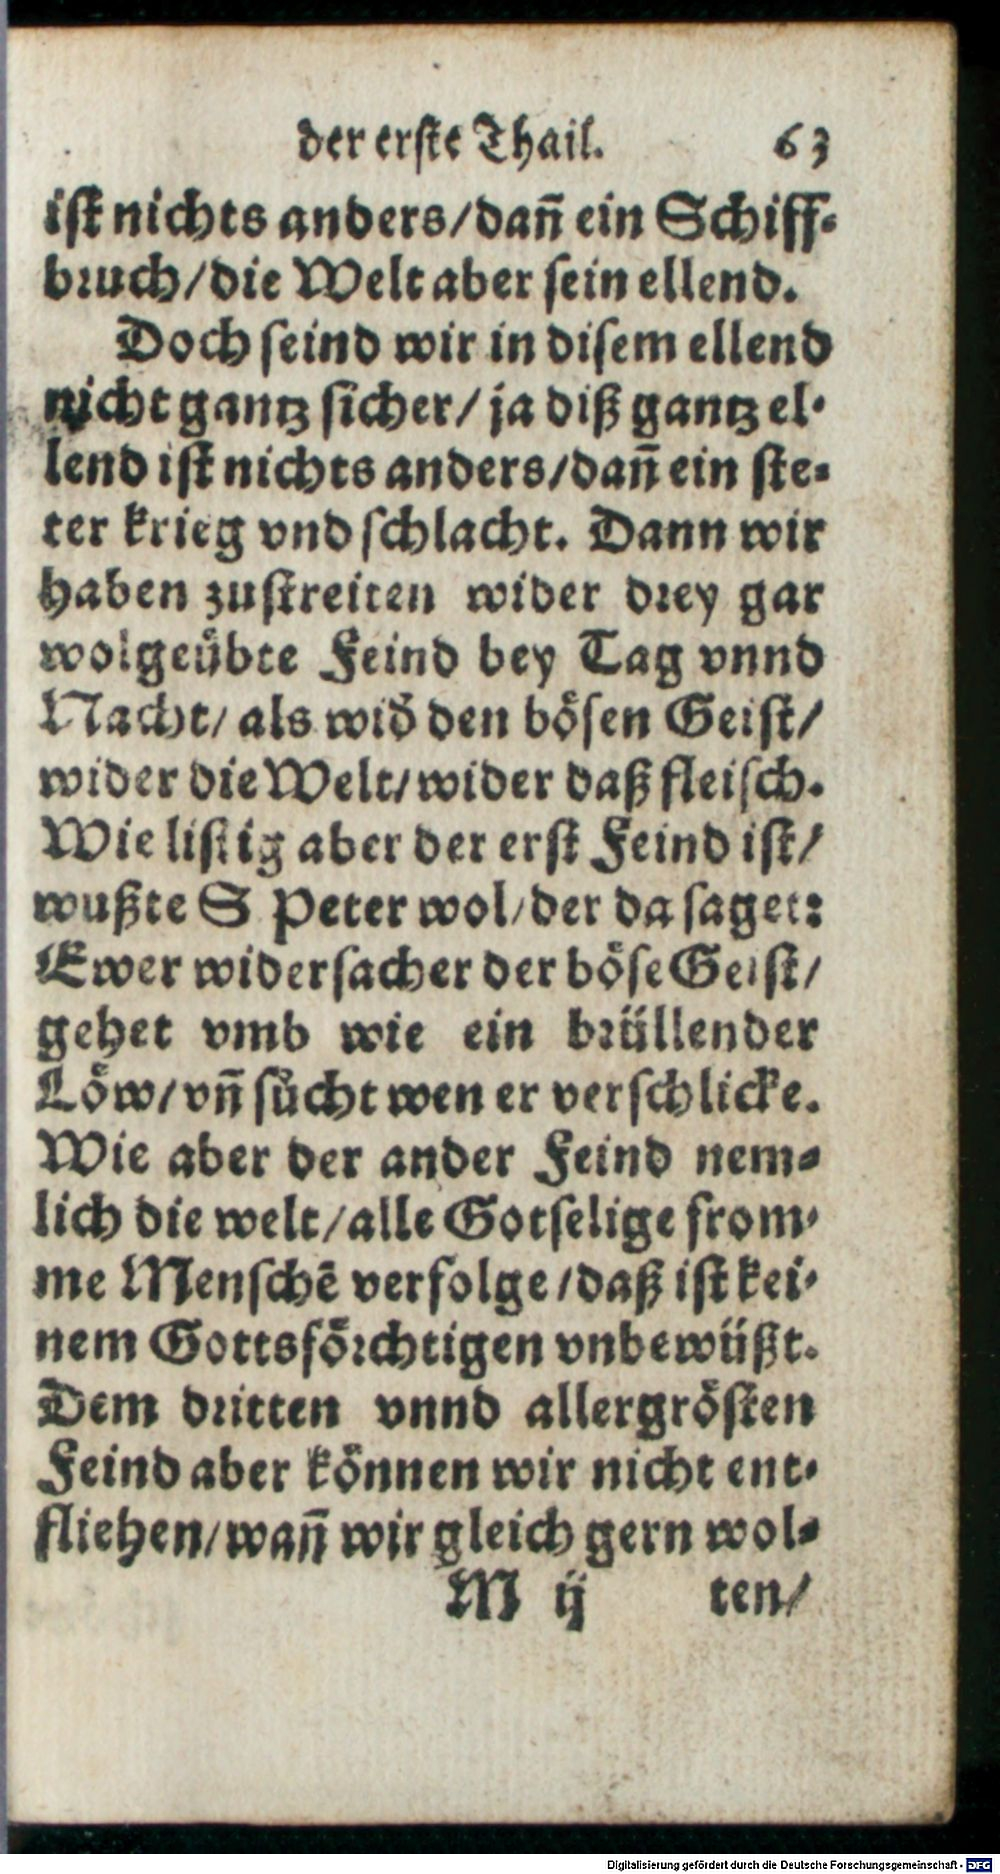 der erste Thail. 63
ist nichts anders/dañ ein Schiff-
bruch/die Welt aber sein ellend.
Doch seind wir in disem ellend
nicht gantz sicher/ ja diß gantz el-
lend ist nichts anders/dañ ein ste-
ter krieg vnd schlacht. Dann wir
haben zustreiten wider drey gar
wolgeübte Feind bey Tag vnnd
Nacht/ als wid̄ den bösen Geist/
wider die Welt/wider daß fleisch.
Wie listig aber der erst Feind ist/
wußte S Peter wol/der da saget:
Ewer widersacher der böse Geist/
gehet vmb wie ein brüllender
Löw/vñ sůcht wen er verschlicke.
Wie aber der ander Feind nem-
lich die welt/alle Gotselige from-
me Menschē verfolge/daß ist kei-
nem Gottsförchtigen vnbewüßt.
Dem dritten vnnd allergrösten
Feind aber können wir nicht ent-
fliehen/wañ wir gleich gern wol-
M ij ten/
Digitalisierung gefördert durch die Deutsche Forschungsgemeinschaft - DFG